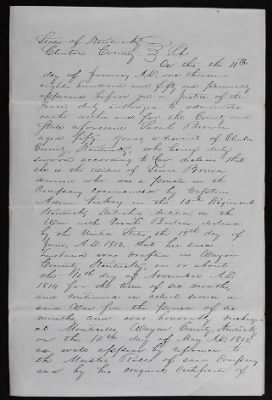 State of Kentucky
Clinton County } Sct.
On this the 18th
day of January A.D. one thousand
eight hundred and fifty one personally
appeared before me a Justice of the
Peace duly authorized to administer
oaths within and for the County and
State aforesaid Sarah Brown
aged fifty years a resident of Clinton
County Kentucky, who being duly
sworn according to law declares that
she is the widow of Lewis Brown
deceased who was a private in the
Company commanded by Captain
Adam Vickery in the 13th Regiment
Kentucky Militia in the
War with Great Britain declared
by the United States, the 18th day of
June, A.D. 1812, that her said
husband was drafted in Wayne
County Kentucky, on or about
the 10th day of November A.D.
1814 for the term of six months,
and continued in actual service in
said War for the period of six
months, and was honorably discharged
at Monticello, Wayne County, Kentucky
on the 10th day of May A.D. 1815
as will appear by reference to
the Muster Rolls of said Company
and by his original certificate of